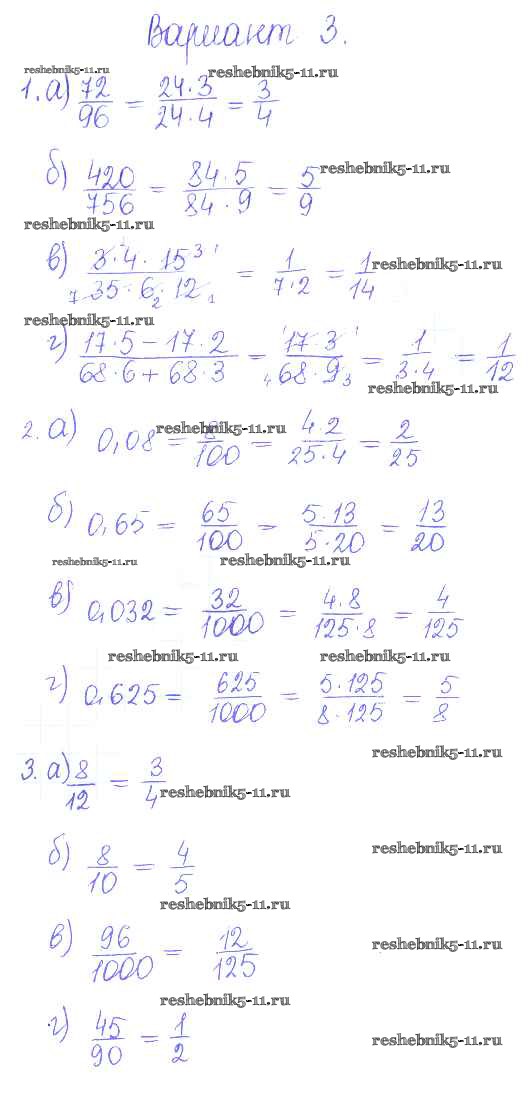 Вариант 3.
reshebnik5-11.ru reshebnik5-11.ru
1. а) 72/96 = 24·3/24·4 = 3/4
reshebnik5-11.ru
б) 420/756 = 84·5/84·9 = 5/9
reshebnik5-11.ru
в) 3·4·15 3 1/7 35·6 2·12 1 = 1/7·2 = 1/14 reshebnik5-11.ru
reshebnik5-11.ru
г) 17·5-17·2/68·6+68·3 = 1 17·3 1/4 68·9 3 = 1/3·4 = 1/12
reshebnik5-11.ru
2. а) 0,08 = 8/100 = 4·2/25·4 = 2/25 reshebnik5-11.ru
б) 0,65 = 65/100 = 5·13/5·20 = 13/20
reshebnik5-11.ru reshebnik5-11.ru
в) 0,032 = 32/1000 = 4·8/125·8 = 4/125
reshebnik5-11.ru reshebnik5-11.ru
г) 0,625 = 625/1000 = 5·125/8·125 = 5/8
reshebnik5-11.ru
3. а) 8/12 = 3/4 reshebnik5-11.ru
б) 8/10 = 4/5 reshebnik5-11.ru
reshebnik5-11.ru
в) 96/1000 = 12/125 reshebnik5-11.ru
reshebnik5-11.ru
г) 45/90 = 1/2 reshebnik5-11.ru